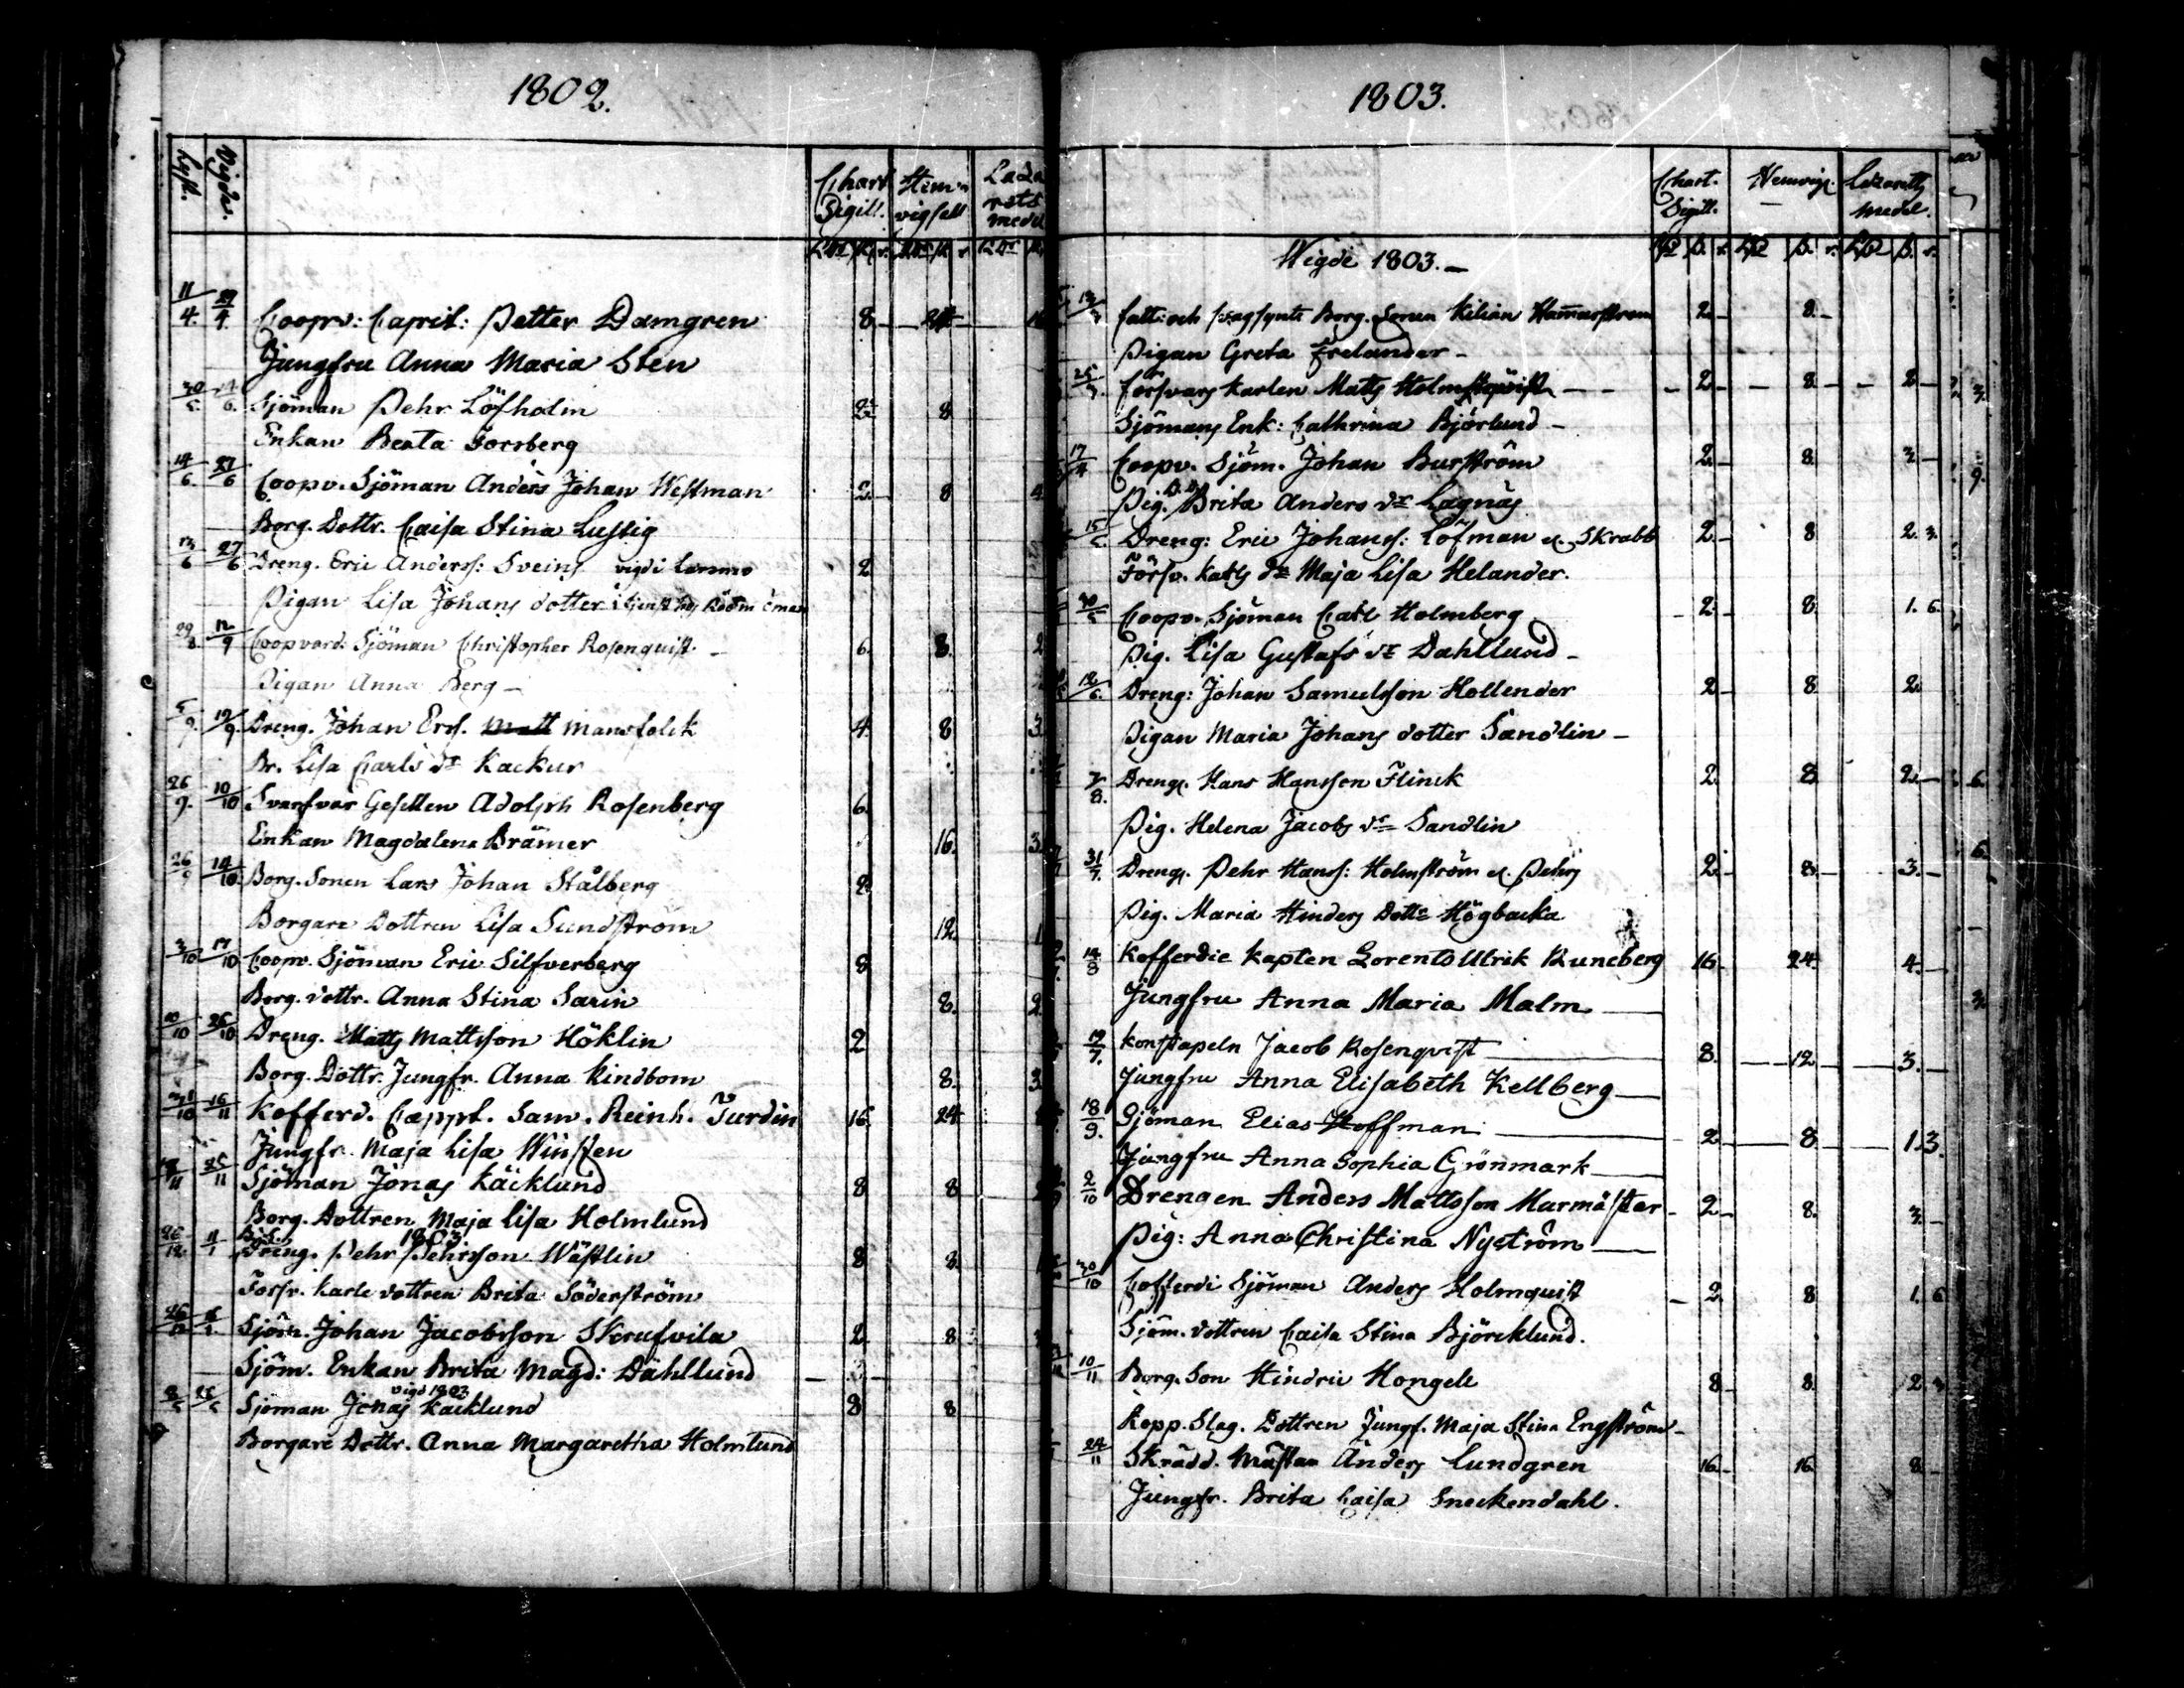 1802.
Lyst. Vigde. Chart Sigill. Hem vigsell Laza rets medel
11/4. 27/4. Coopv: Capit: Petter Damgren 8 24 16
Jungfru Anna Maria Sten
30/5. 6. Sjöman Pehr Löfholm 2 8
Enkan Beata Forsberg
14/6. 27/6 Coopv. Sjöman Anders Johan Westman 2. 8 4
Borg. Dottr. Caisa Stina Lustig
13/6 27/6 Dreng. Eric Anderss: Sveins vigd i 2
Pigan Lisa Johans dotter i tjenst hos
29/8. 12/9 Coopvard: Sjöman Christopher Rosenquist. 6. 8. 2
Pigan Anna Berg
5/9. 19/9. Dreng. Johan Ers. Matt Mansfolck 4 8 3.
Br. Lisa Carls dr Kackur
26/9. 10/10 Svarfvar Gesellen Adolph Rosenberg 6.
Enkan Magdalena Brämer 16. 3.
26/9 14/10. Borg. Sonen Lars Johan Stålberg 2
Borgare Dottren Lisa Sundström 12. 1
3/10 17/10 Coopv. Sjöman Eric Silfverberg 8
Borg. dottr. Anna Stina Sarin 8. 2.
10/10 26/10 Dreng. Matts Mattsson Höklin 2
Borg. Dottr. Jungfr. Anna Kindbom 8. 3.
31/10 16/11 Kofferd. Cappt. Sam. Reinh. Turdin 16. 24
Jungfr. Maja Lisa Winsten
25/11 Sjöman Jonas Käcklund 8 8
Borg. Dottren Maja Lisa Holmlund
1803
26/12. 11/1 Dreng. Pehr Pehrsson Wästlin 8 8.
Förfv. Karls dottren Brita Söderström
26/12 6/1. Sjöm. Johan Jacobsson Skrufvila 2 8
Sjöm. Enkan Brita Magd: Dahllund
vigd 1803
Sjöman Jonas Käcklund 8 8
Borgare Dottr. Anna Margaretha Holmlund
1803.
Chart. Sigill. Hemvig. Lazaretts medel.
Wigde 1803.
Borg. Sonen Kilian Hammarström 2 8
Pigan Greta Frelander
25/3. Försvars Karlen Matts Holmqvist 2 8 2
Sjömans Enk: Cathrina Björlund
17/4 Coopv. Sjöm. Johan Burström 2 8 3
Pig. Brita Anders dr Lagnäs
15/5 Dreng: Eric Johanss: Löfman el. Skrabb 2 8 2. 3.
Försv. Karls dr Maja Lisa Helander.
30/5 Coopv. Sjöman Carl Holmberg 2 8 1. 6.
Pig. Lisa Gustafs dr Dahllund
12/6 Dreng: Johan Samuelsson Hollender 2 8 2
Pigan Maria Johans dotter Sandlin
7/8. Dreng. Hans Hansson Flinck 2 8 2
Pig. Helena Jacobs dr Sandlin
31/7. Dreng. Pehr Hanss: Holmström el. Pehrs 2 8 3.
Pig. Maria Hinders Dottr Högbacka
14/8 Kofferdie Kapten Lorents Ulrik Runeberg 16 24 4.
Jungfru Anna Maria Malm
19/7. Konstapeln Jacob Rosenqvist 8. 12 3.
Jungfru Anna Elisabeth Kellberg
18/9. Sjöman Elias Hoffman 2 8 1.3.
Jungfru Anna Sophia Grönmark
2/10 Drengen Anders Mattsson Murmästar 2 8. 3.
Pig: Anna Christina Nyström
30/10 Cofferdi Sjöman Anders Holmquist 2 8 1. 6
Sjöm. dottren Caisa Stina Björcklund.
10/11 Borg. Son Hindric Hongell 8 8 2. 3
Kopp. Slag. Dottren Jungf. Maja Stina Engström
24/11 Skrädd. Mästar Anders Lundgren 16 16 8
Jungfr. Brita Caisa Sneckendahl.